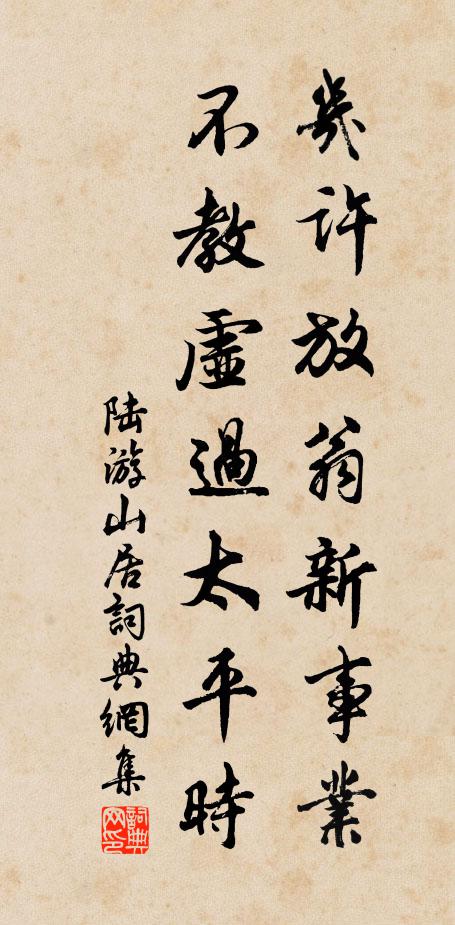 幾許放翁新事業
不教虛過太平時
陆游山居詞典網集
詞典網印